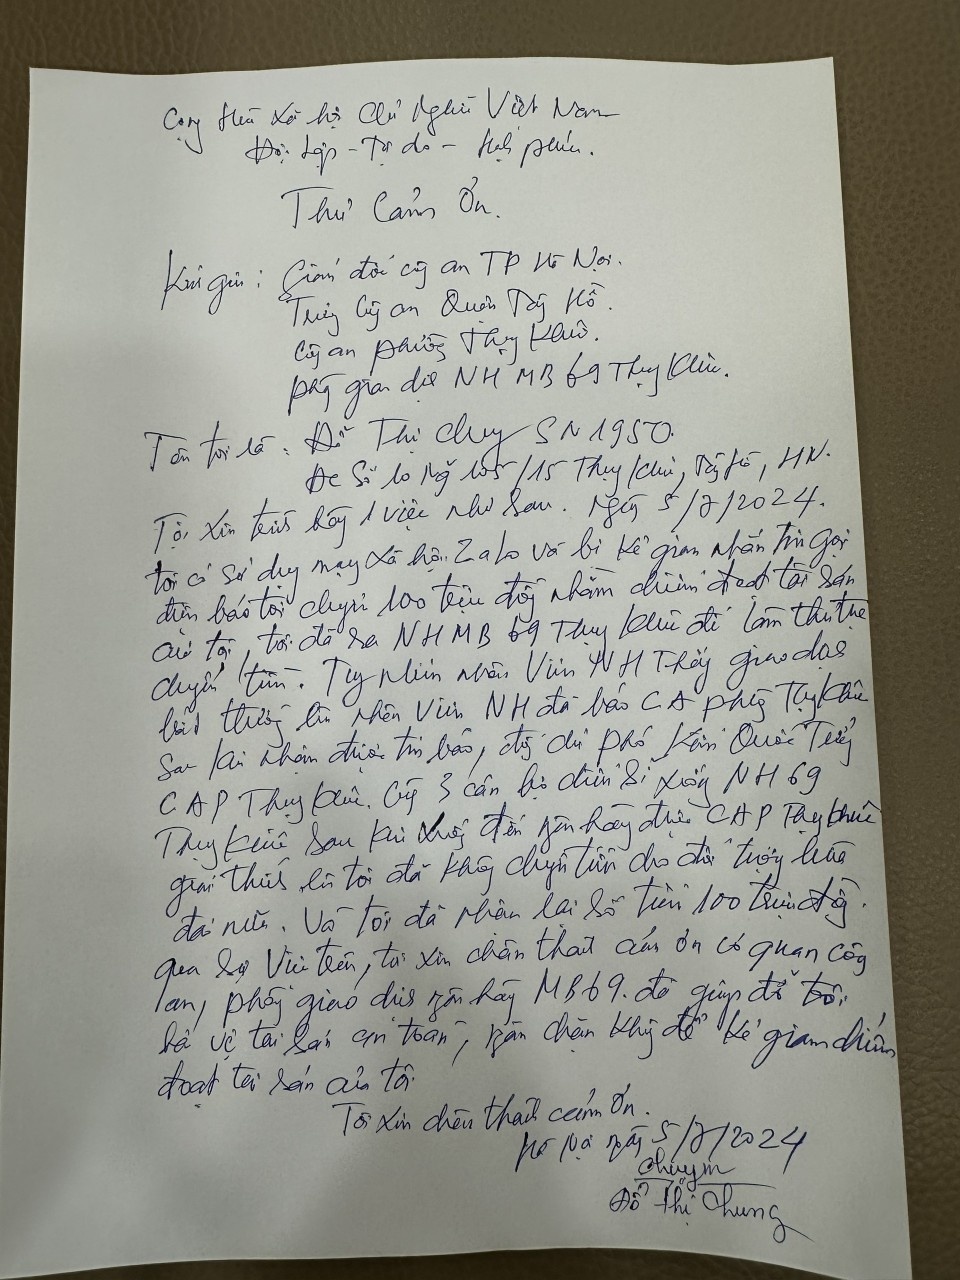 Cộng Hòa Xã hội Chủ Nghĩa Việt Nam
Độc Lập - Tự do - Hạnh phúc.
Thư Cảm Ơn.
Kính gửi: Giám đốc công an TP Hà Nội.
Trưởng Công an Quận Tây Hồ.
Công an phường Thụy Khuê.
phòng giao dịch NH MB 69 Thụy Khuê.
Tên tôi là: Đỗ Thị Chung SN 1950.
ĐC Số 10 Ngõ 105/15 Thụy Khuê, Tây Hồ, HN.
Tôi xin trình bày 1 việc như sau. Ngày 5/7/2024.
tôi có sử dụng mạng xã hội Zalo và bị kẻ gian nhắn tin gọi
điện báo tôi chuyển 100 triệu đồng nhằm chiếm đoạt tài sản
của tôi, tôi đã ra NH MB 69 Thụy Khuê để làm thủ tục
chuyển tiền. Tuy nhiên nhân Viên NH Thấy giao dịch
bất thường lên nhân Viên NH đã báo CA phường Thụy Khuê
Sau khi nhận được tin báo, đồng chí phó Quốc
CAP Thụy Khuê. Cùng 3 cán bộ chiến sĩ xuống NH 69
Thụy Khuê Sau khi xuống đến ngân hàng được CAP Thụy Khuê
giải thích lên tôi đã không chuyển tiền cho đối tượng lừa
đảo nữa. Và tôi đã nhận lại số tiền 100 triệu đồng.
qua sự Việc trên, tôi xin chân thành cảm ơn cơ quan công
an, phòng giao dịch ngân hàng MB 69. đã giúp đỡ tôi
bảo vệ tài sản an toàn, ngăn chặn không để kẻ gian chiếm
đoạt tài sản của tôi
Tôi xin chân thành cảm ơn.
Hà Nội ngày 5/7/2024
Đỗ Thị Chung